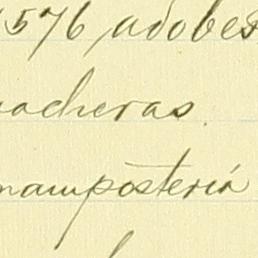 1576 adobes
acheras.
mampostería